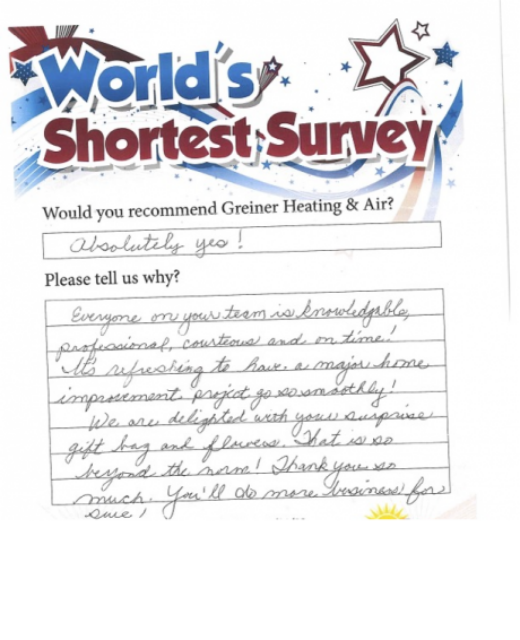 World's
Shortest Survey
Would you recommend Greiner Heating & Air?
Absolutely yes!
Please tell us why?
Everyone on your team is knowledgable,
professional, courteous and on time!
It's refreshing to have a major home
improvement project go so smoothly!
We are delighted with your surprise
gift bag and flowers. That is so
beyond the norm! Thank you so
much. You'll do more business for
sure!